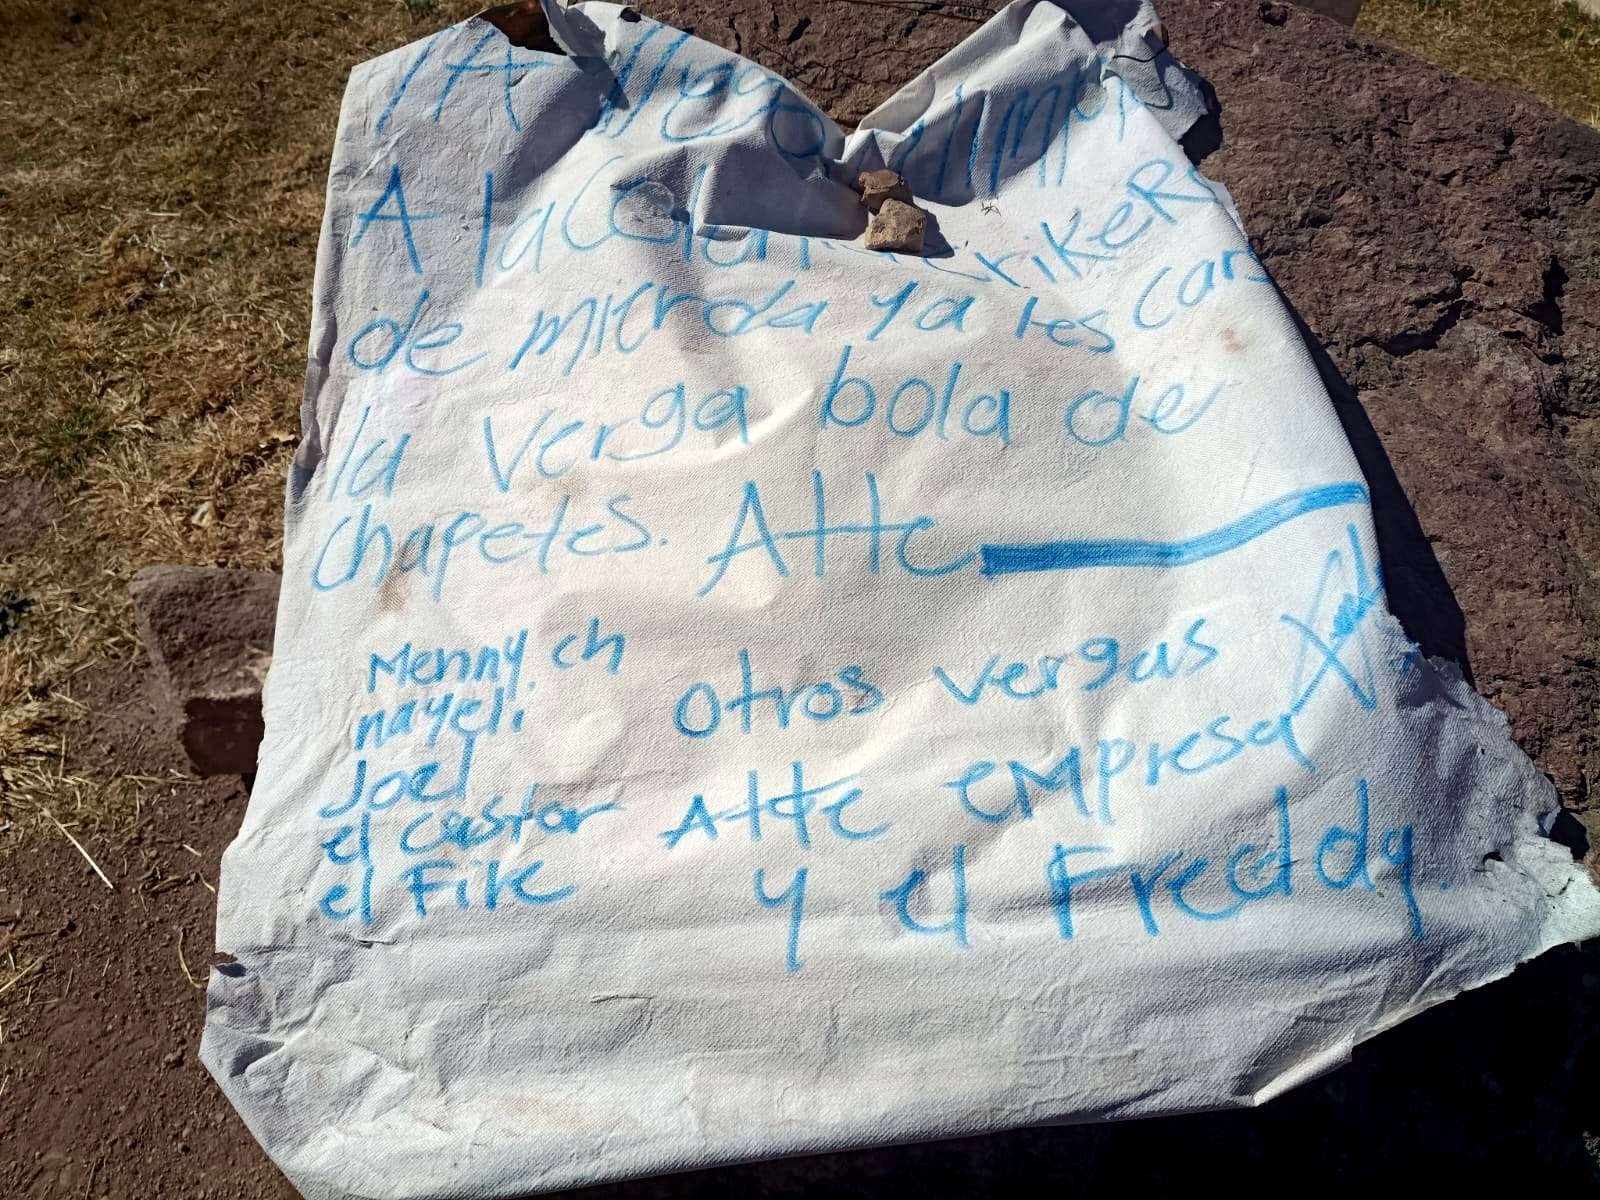 YA llego
A la Colon
de mierda ya les cars
la verga bola de
chapetes. Atte
Menny. ch
nayeli
Joel
el castor
el File
otros vergas
Atte empresa
y el Freddy.